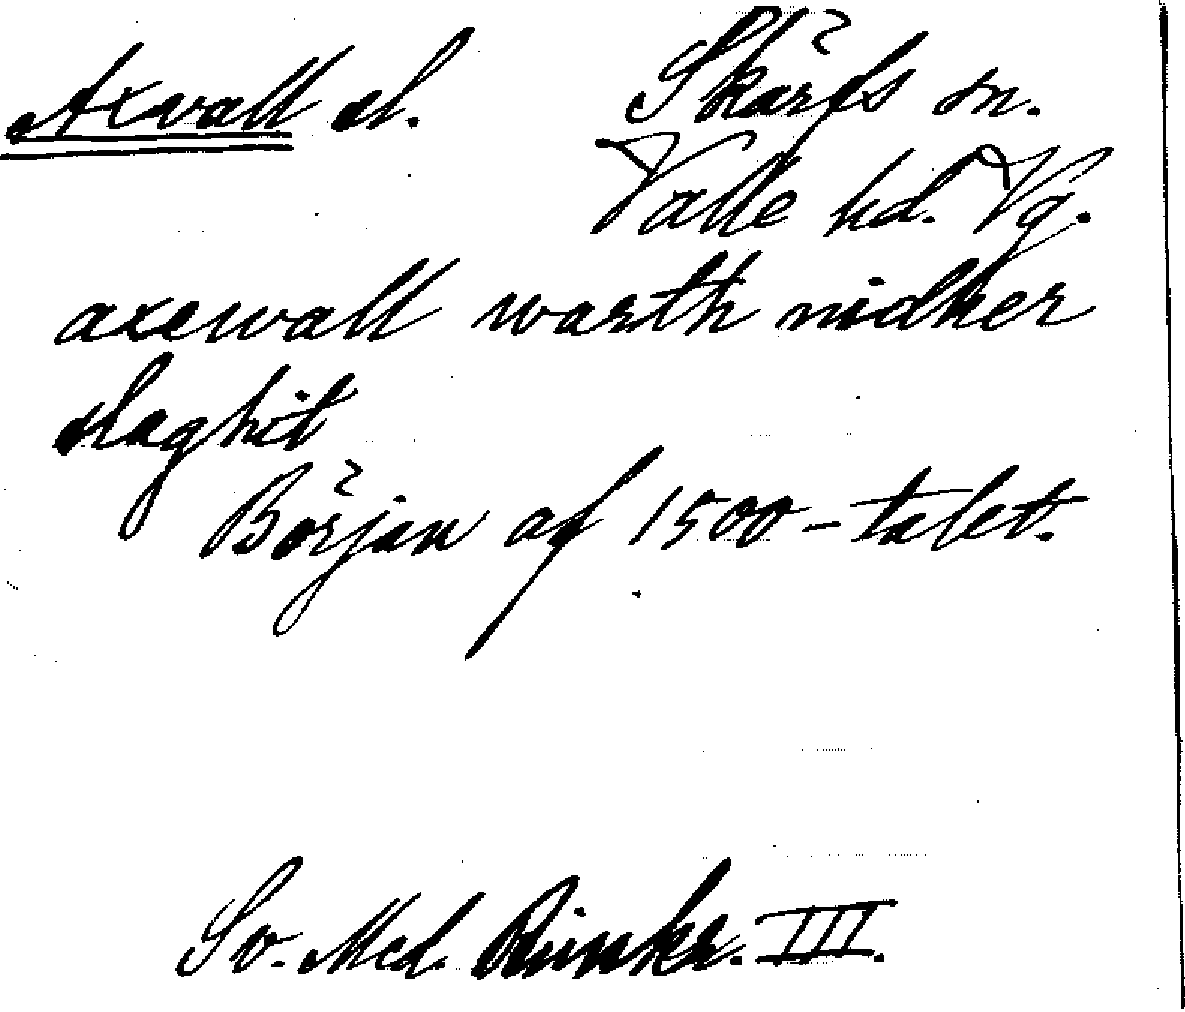 Axvall sl. Skärfs sn.
Valle hd. Vg.
axewall warth nidher
slaghit
Början af 1500-talet.
Sv. Med. Rimkr. III.